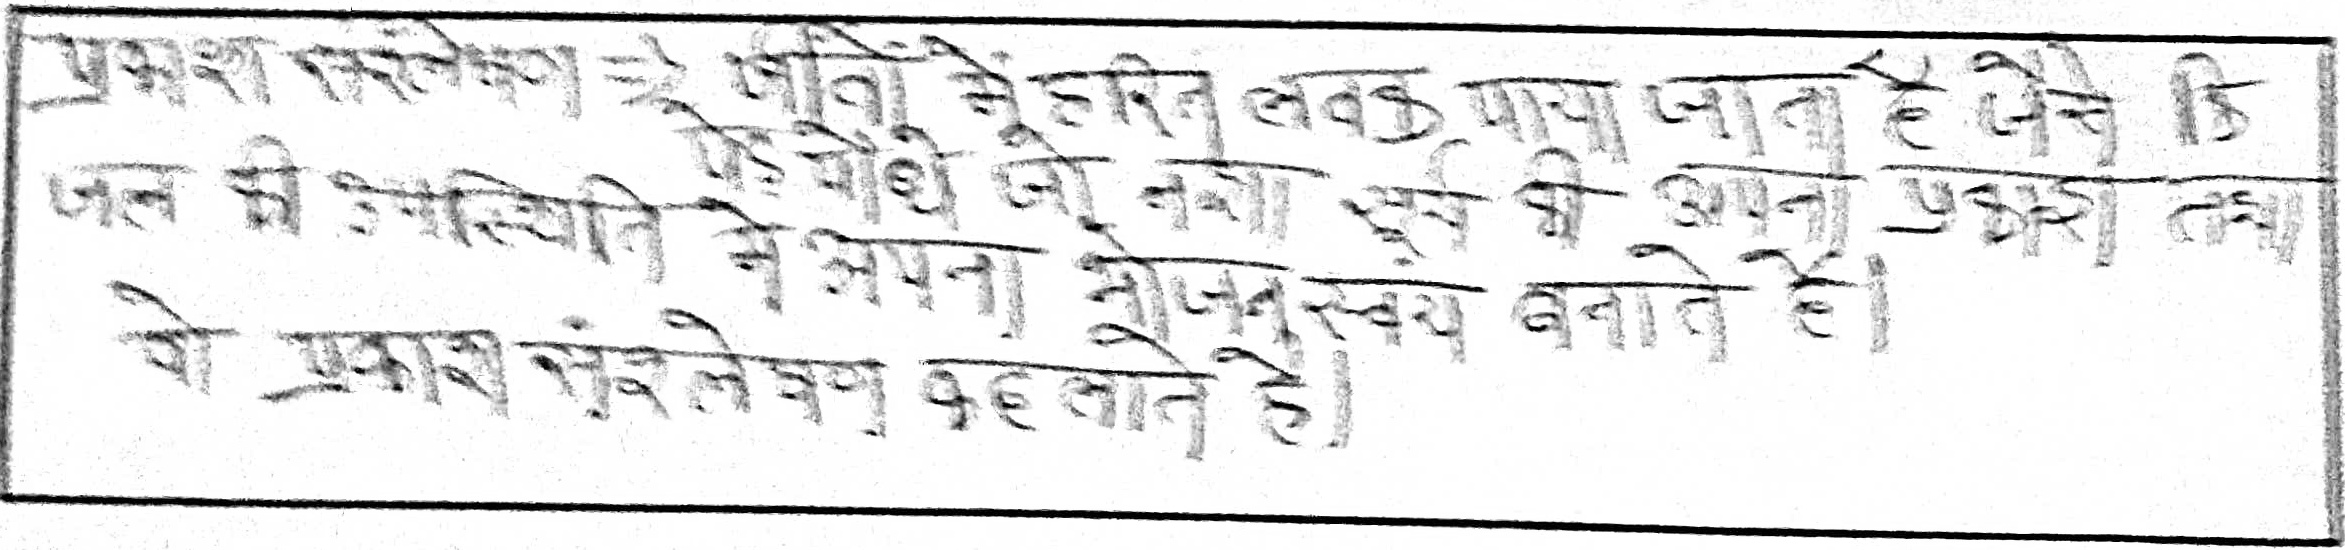 प्रकाश संश्लेषण ⇒ जीवों में हरित लवक पाया जाता है जैसे कि
पेड़ पौधे जो तथा सूर्य की अपना प्रकाश तथा
जल की उपस्थिति मे अपना भोजन स्वंय बनाते है।
वो प्रकाश संश्लेषण कहलाते है।